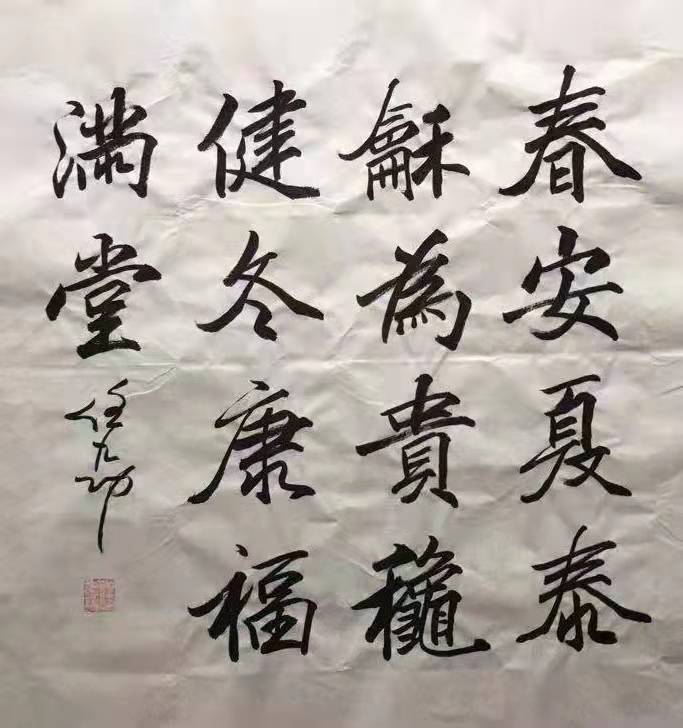 春安夏泰
龢為貴龝
健冬康福
満堂
任九功